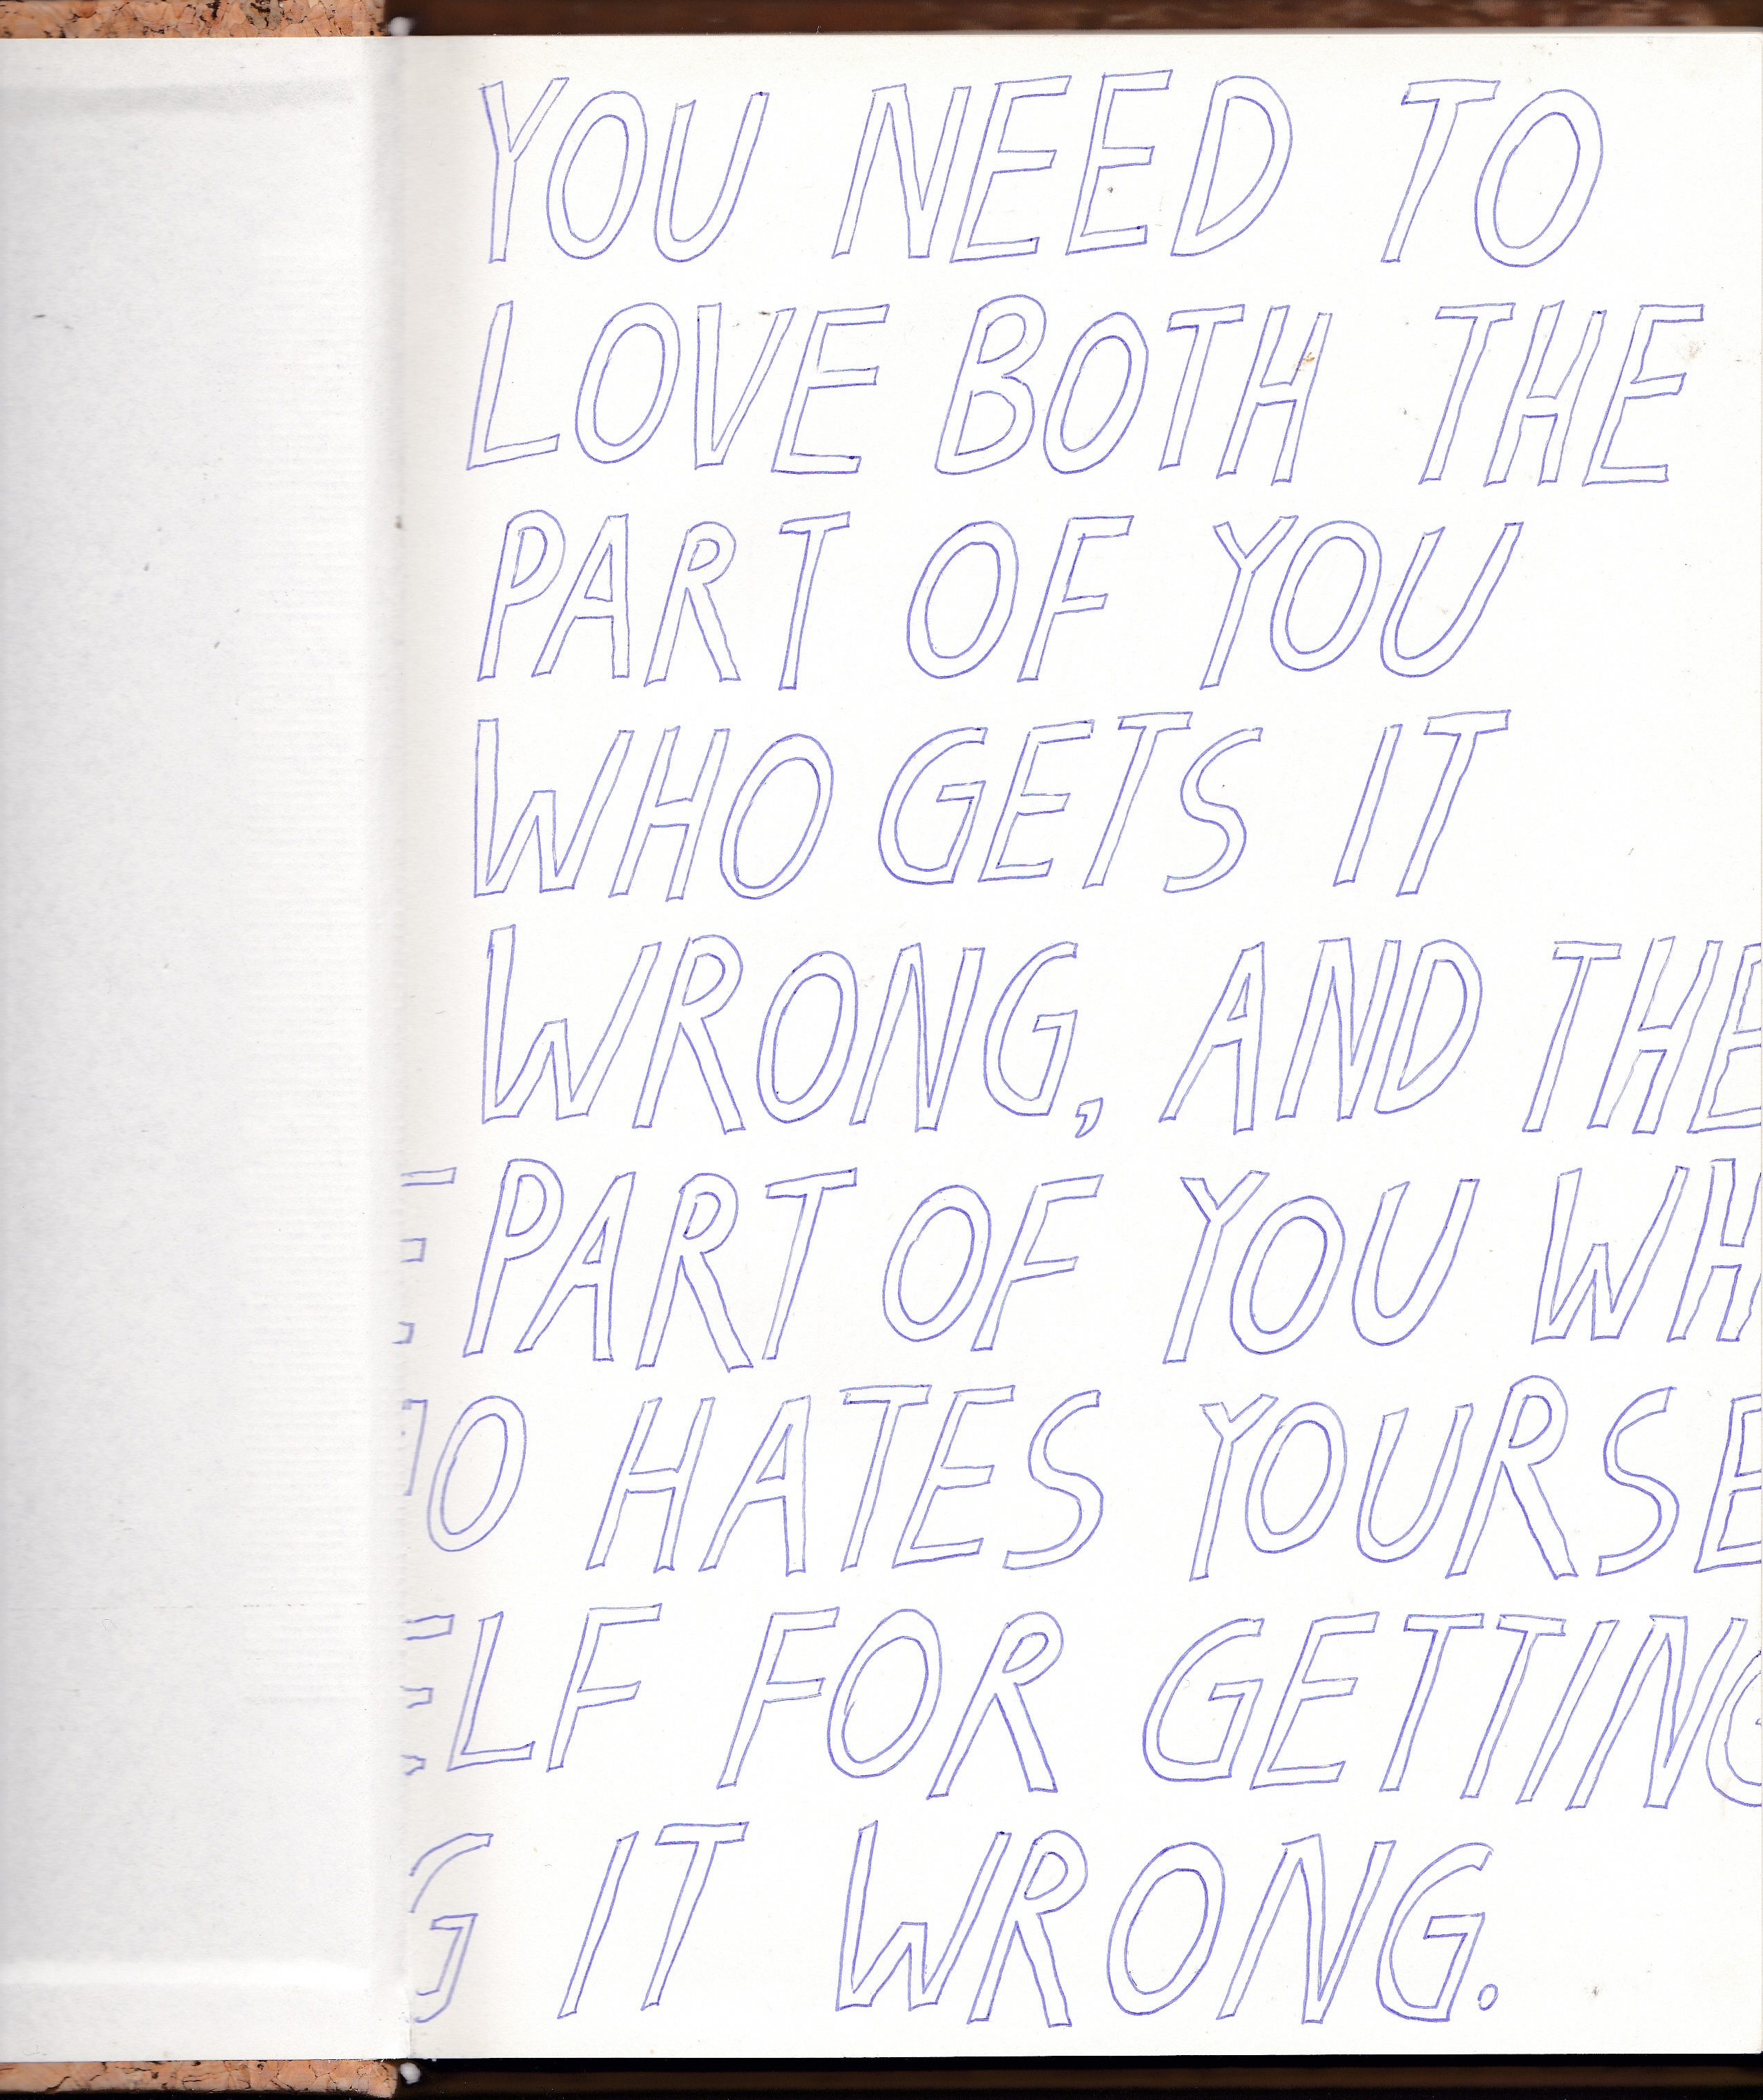 YOU NEED TO
LOVE BOTH THE
PART OF YOU
WHO GETS IT
WRONG, AND THE
E PART OF YOU WH
HO HATES YOURSE
ELF FOR GETTING
G IT WRONG.